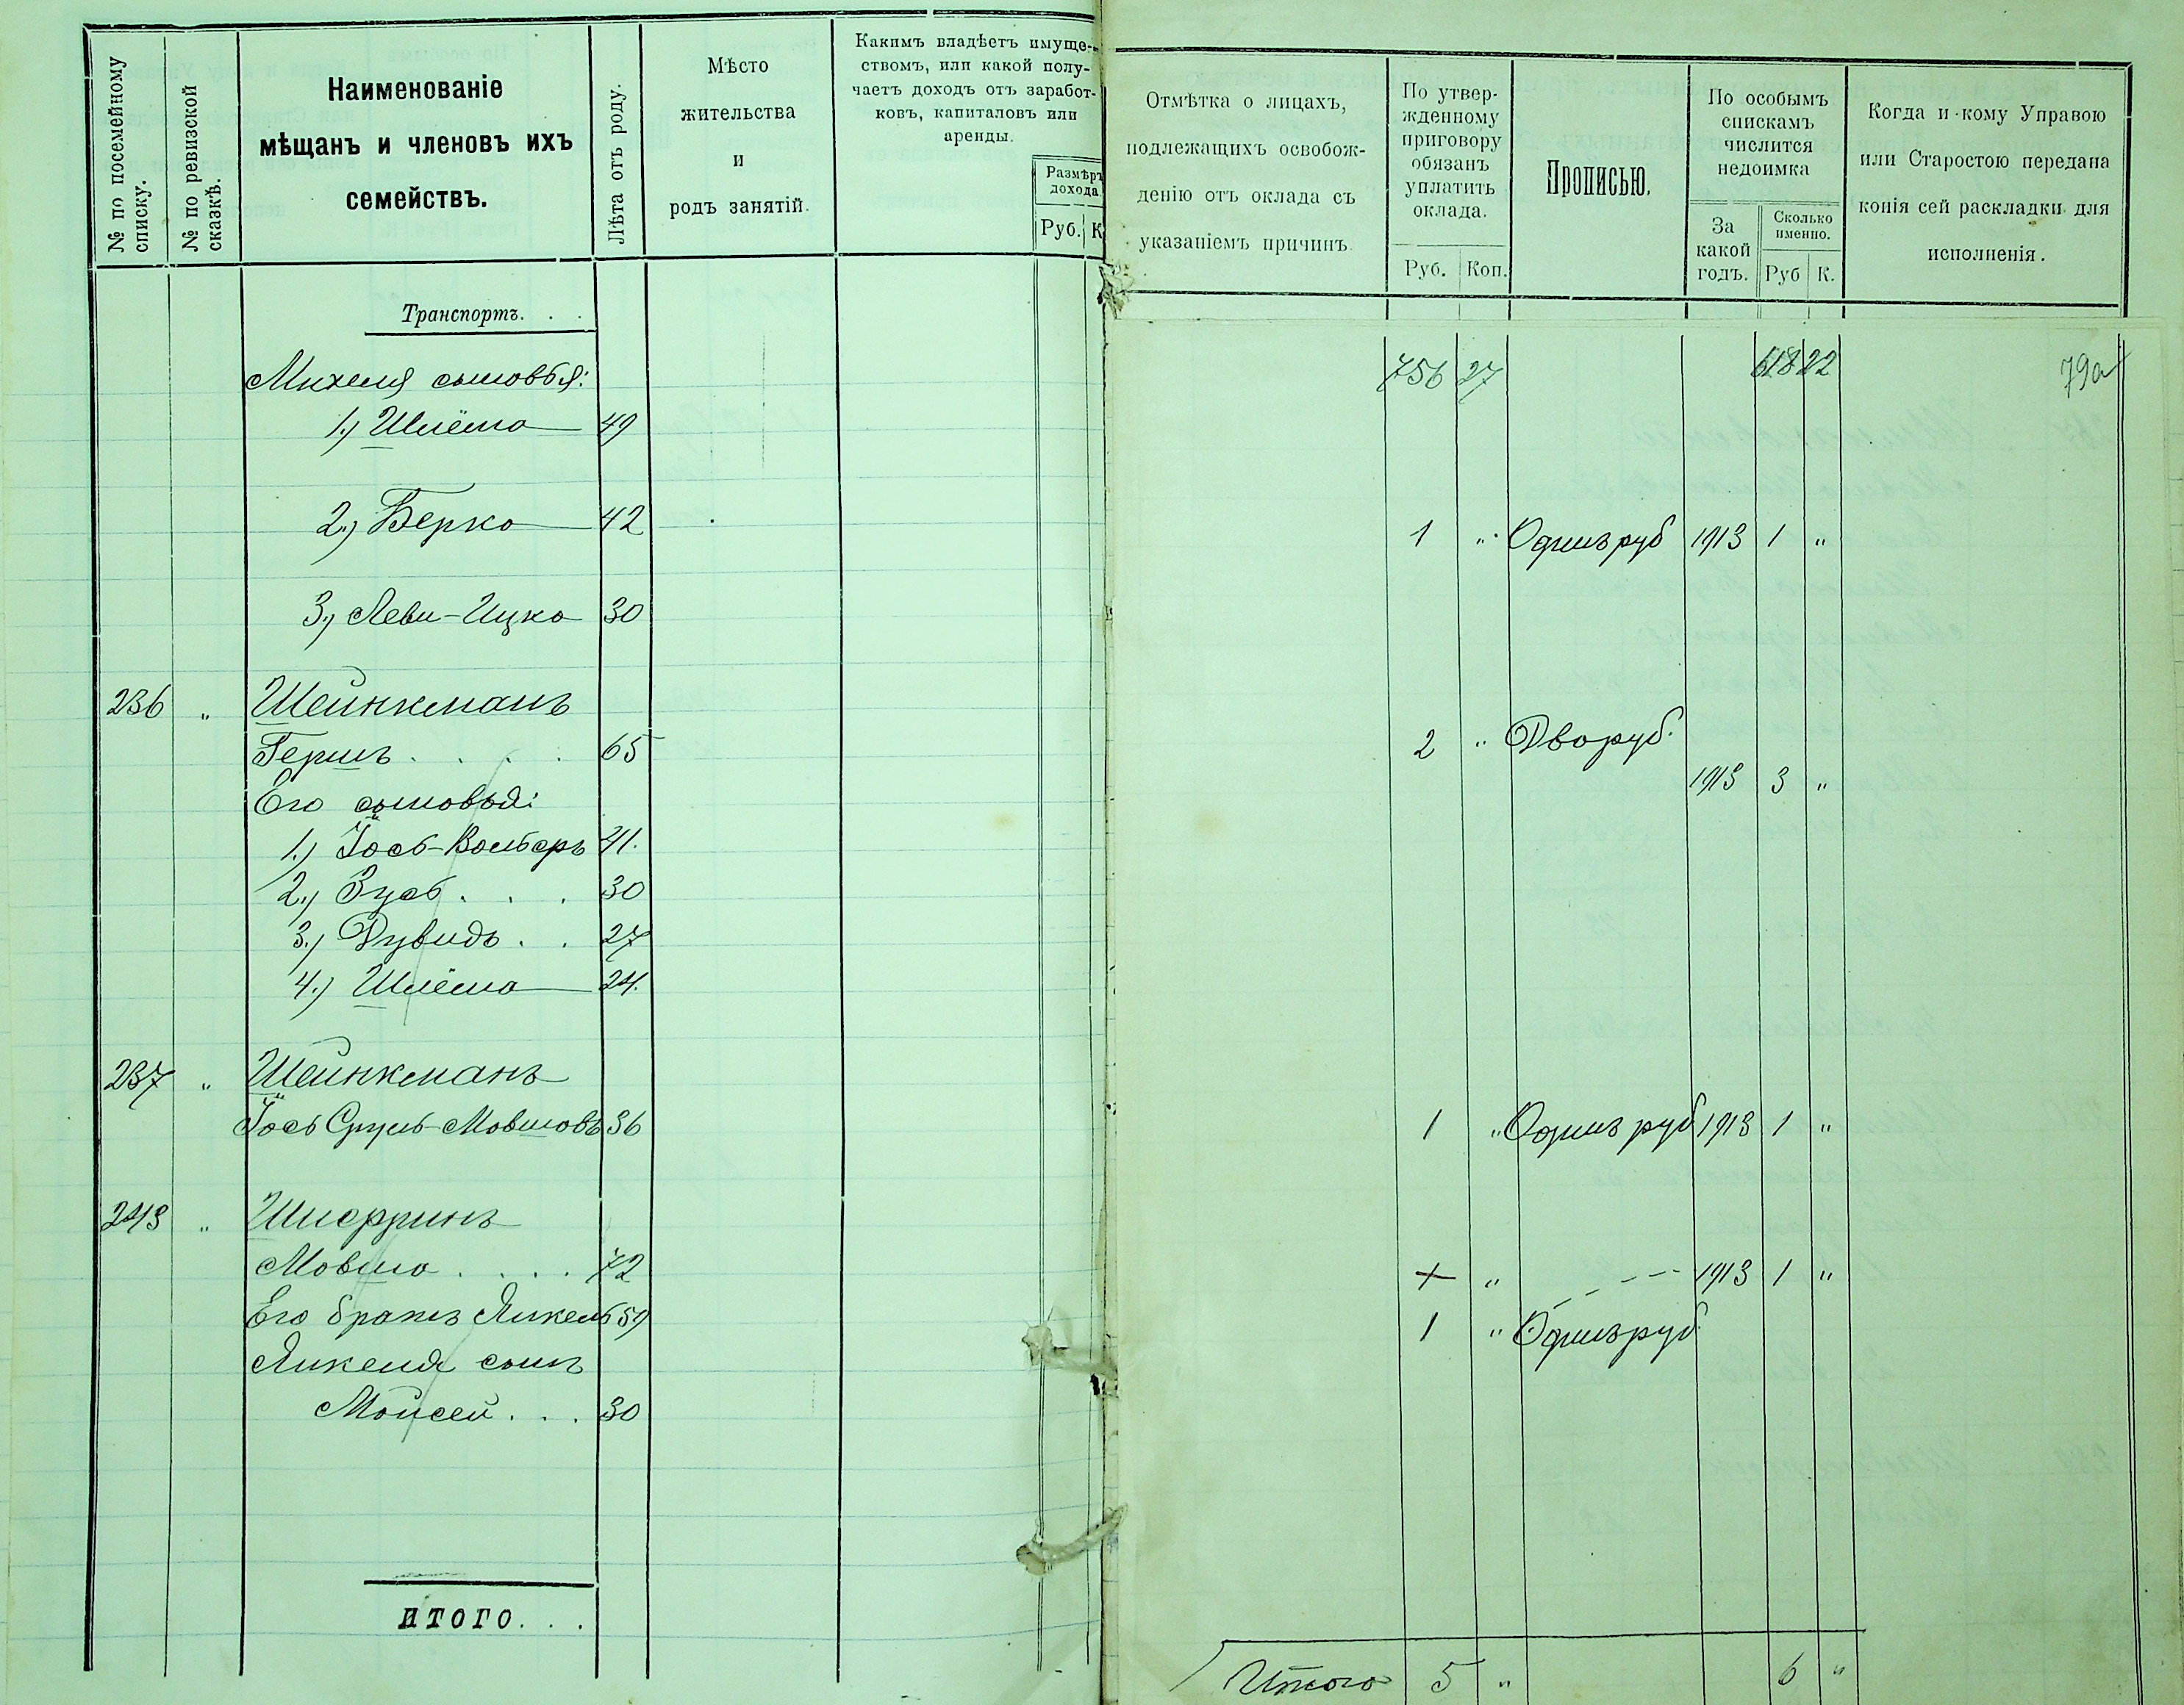 № по посемейному списку.
№ по ревизской сказкѣ.
Наименованіе
мѣщанъ и членовъ ихъ
семействъ.
Лѣта отъ роду.
Мѣсто
жительства
и
родъ занятій.
Какимъ владѣетъ имуще-
ствомъ, или какой полу-
чаетъ доходъ отъ заработ-
ковъ, капиталовъ или
аренды.
Размѣръ
дохода
Руб. К
Отмѣтка о лицахъ,
подлежащихъ освобож-
денію отъ оклада съ
указаніемъ причинъ
По утвер-
жденному
приговору
обязанъ
уплатить
оклада.
Руб. Коп.
Прописью.
По особымъ
спискамъ
числится
недоимка
За
какой
годъ.
Сколько
именно.
Руб К.
Когда и кому Управою
или Старостою передана
копія сей раскладки для
исполненія.
Транспортъ. . .
756 27 618 22 79а
Михеля сыновья:
1.) Шлёма 49
2.) Берко 42 1 " Одинъ руб 1913 1 "
3.) Леви-Ицко 30
236 " Шейнкманъ
Гершъ . . . . 65 2 " Два руб.
Его сыновья: 1913 3 "
1.) Іось-Вольфъ 41.
2.) Зусь . . . 30
3.) Дувидъ . . 27
4.) Шлёма 24.
237 " Шейнкманъ
Іось Сруль-Мовшовъ 36 1 " Одинъ руб 1913 1 "
243 " Шифринъ
Мовша . . . . 72 + " - - - 1913 1 "
Его братъ Янкель 59 1 " Одинъ руб.
Янкеля сынъ
Мойсей . . . 30
ИТОГО. . .
Итого 5 " 6 "